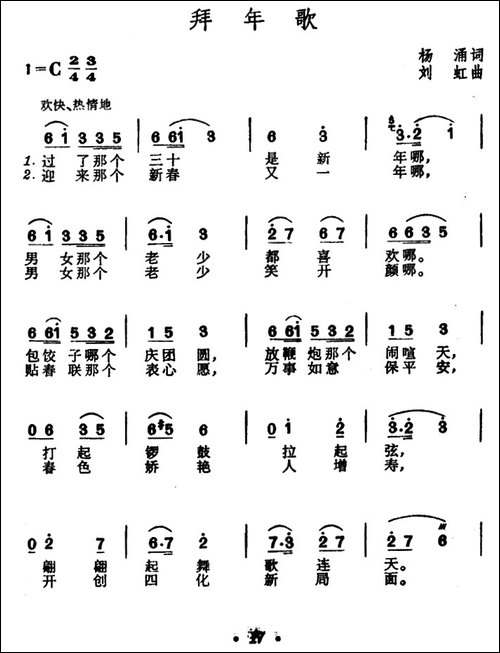 拜年歌
1=C 2/4 3/4
杨涌词
刘虹曲
欢快、热情地
6 i 3 3 5 | 6 6i 3 | 6 3 | 3·2 i |
1.过了那个 三十 是新 年哪,
2.迎来那个 新春 又一 年哪,
6 i 3 3 5 | 6·i 3 | 2 7 6 7 | 6 6 3 5 |
男女那个 老少 都喜 欢哪。
男女那个 老少 笑开 颜哪。
6 6i 5 3 2 | 1 5 3 | 6 6i 5 3 2 | 1 5 3 |
包饺子哪个 庆团圆, 放鞭炮那个 闹喧天,
贴春联那个 表心愿, 万事如意 保平安,
0 6 3 5 | 6#5 6 | 0 i 2 | 3·2 3 |
打起 锣鼓 拉起 弦,
春色 娇艳 人增寿,
0 2 7 | 6·7 2 | 7·3 2 7 | 6 |
翩翩 起舞 歌连 天。
开创 四化 新局 面。
· 17 ·